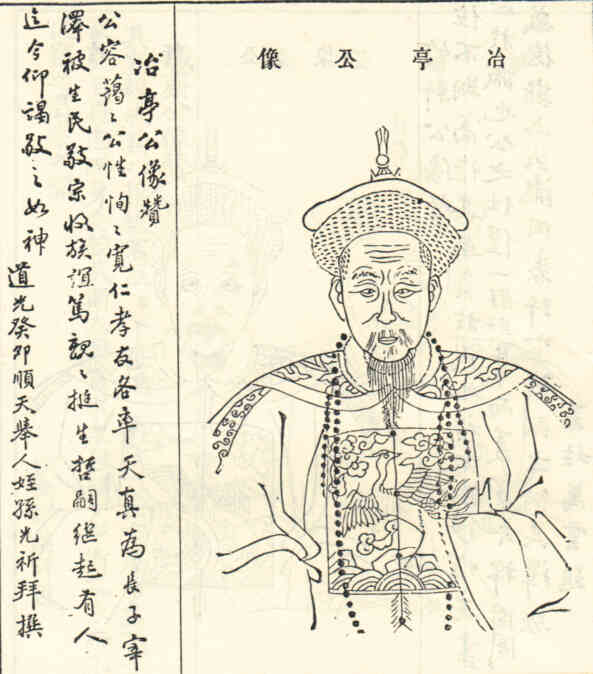 冶亭公像
冶亭公像贊
公容藹〻公性恂〻寬仁孝友各率天真為長子宰
澤被生民敬宗收族誼篤親〻挺生哲嗣繼起有人
迄今仰謁敬之如神 道光癸卯順天舉人姪孫光祈拜撰